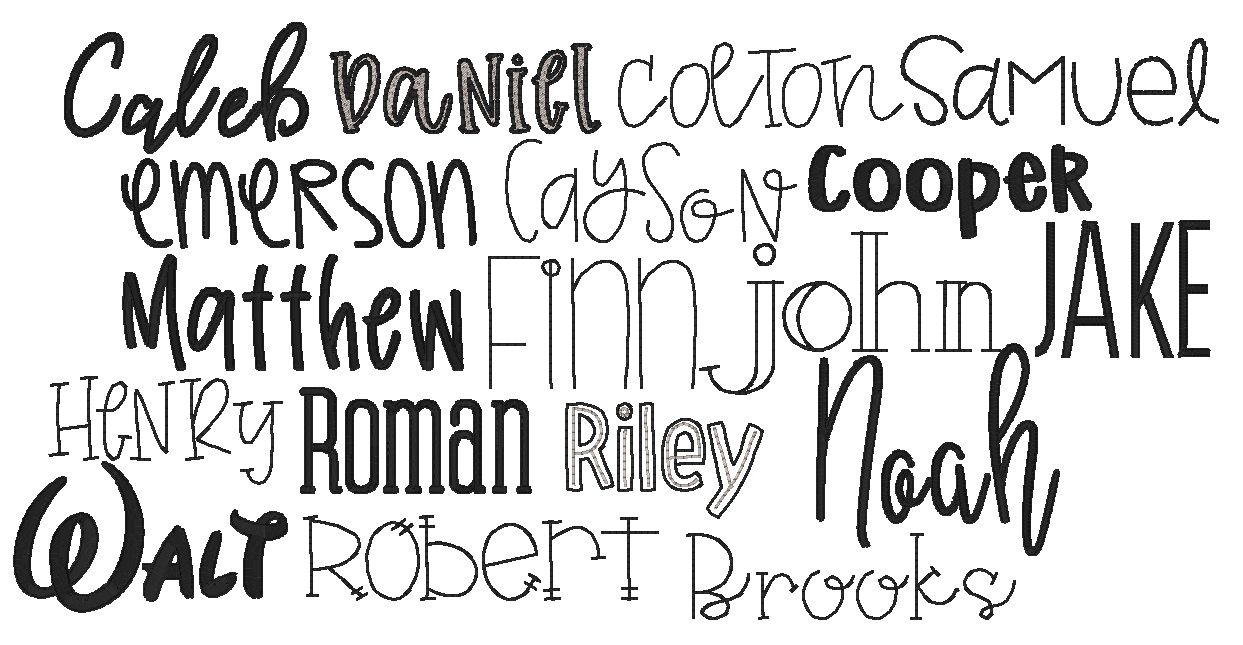 Caleb DaNiel ColTon SaMuel
emerson CaySoN Cooper
Matthew Finn john JAKE
HeNRy Roman Riley Noah
WALT Robert Brooks